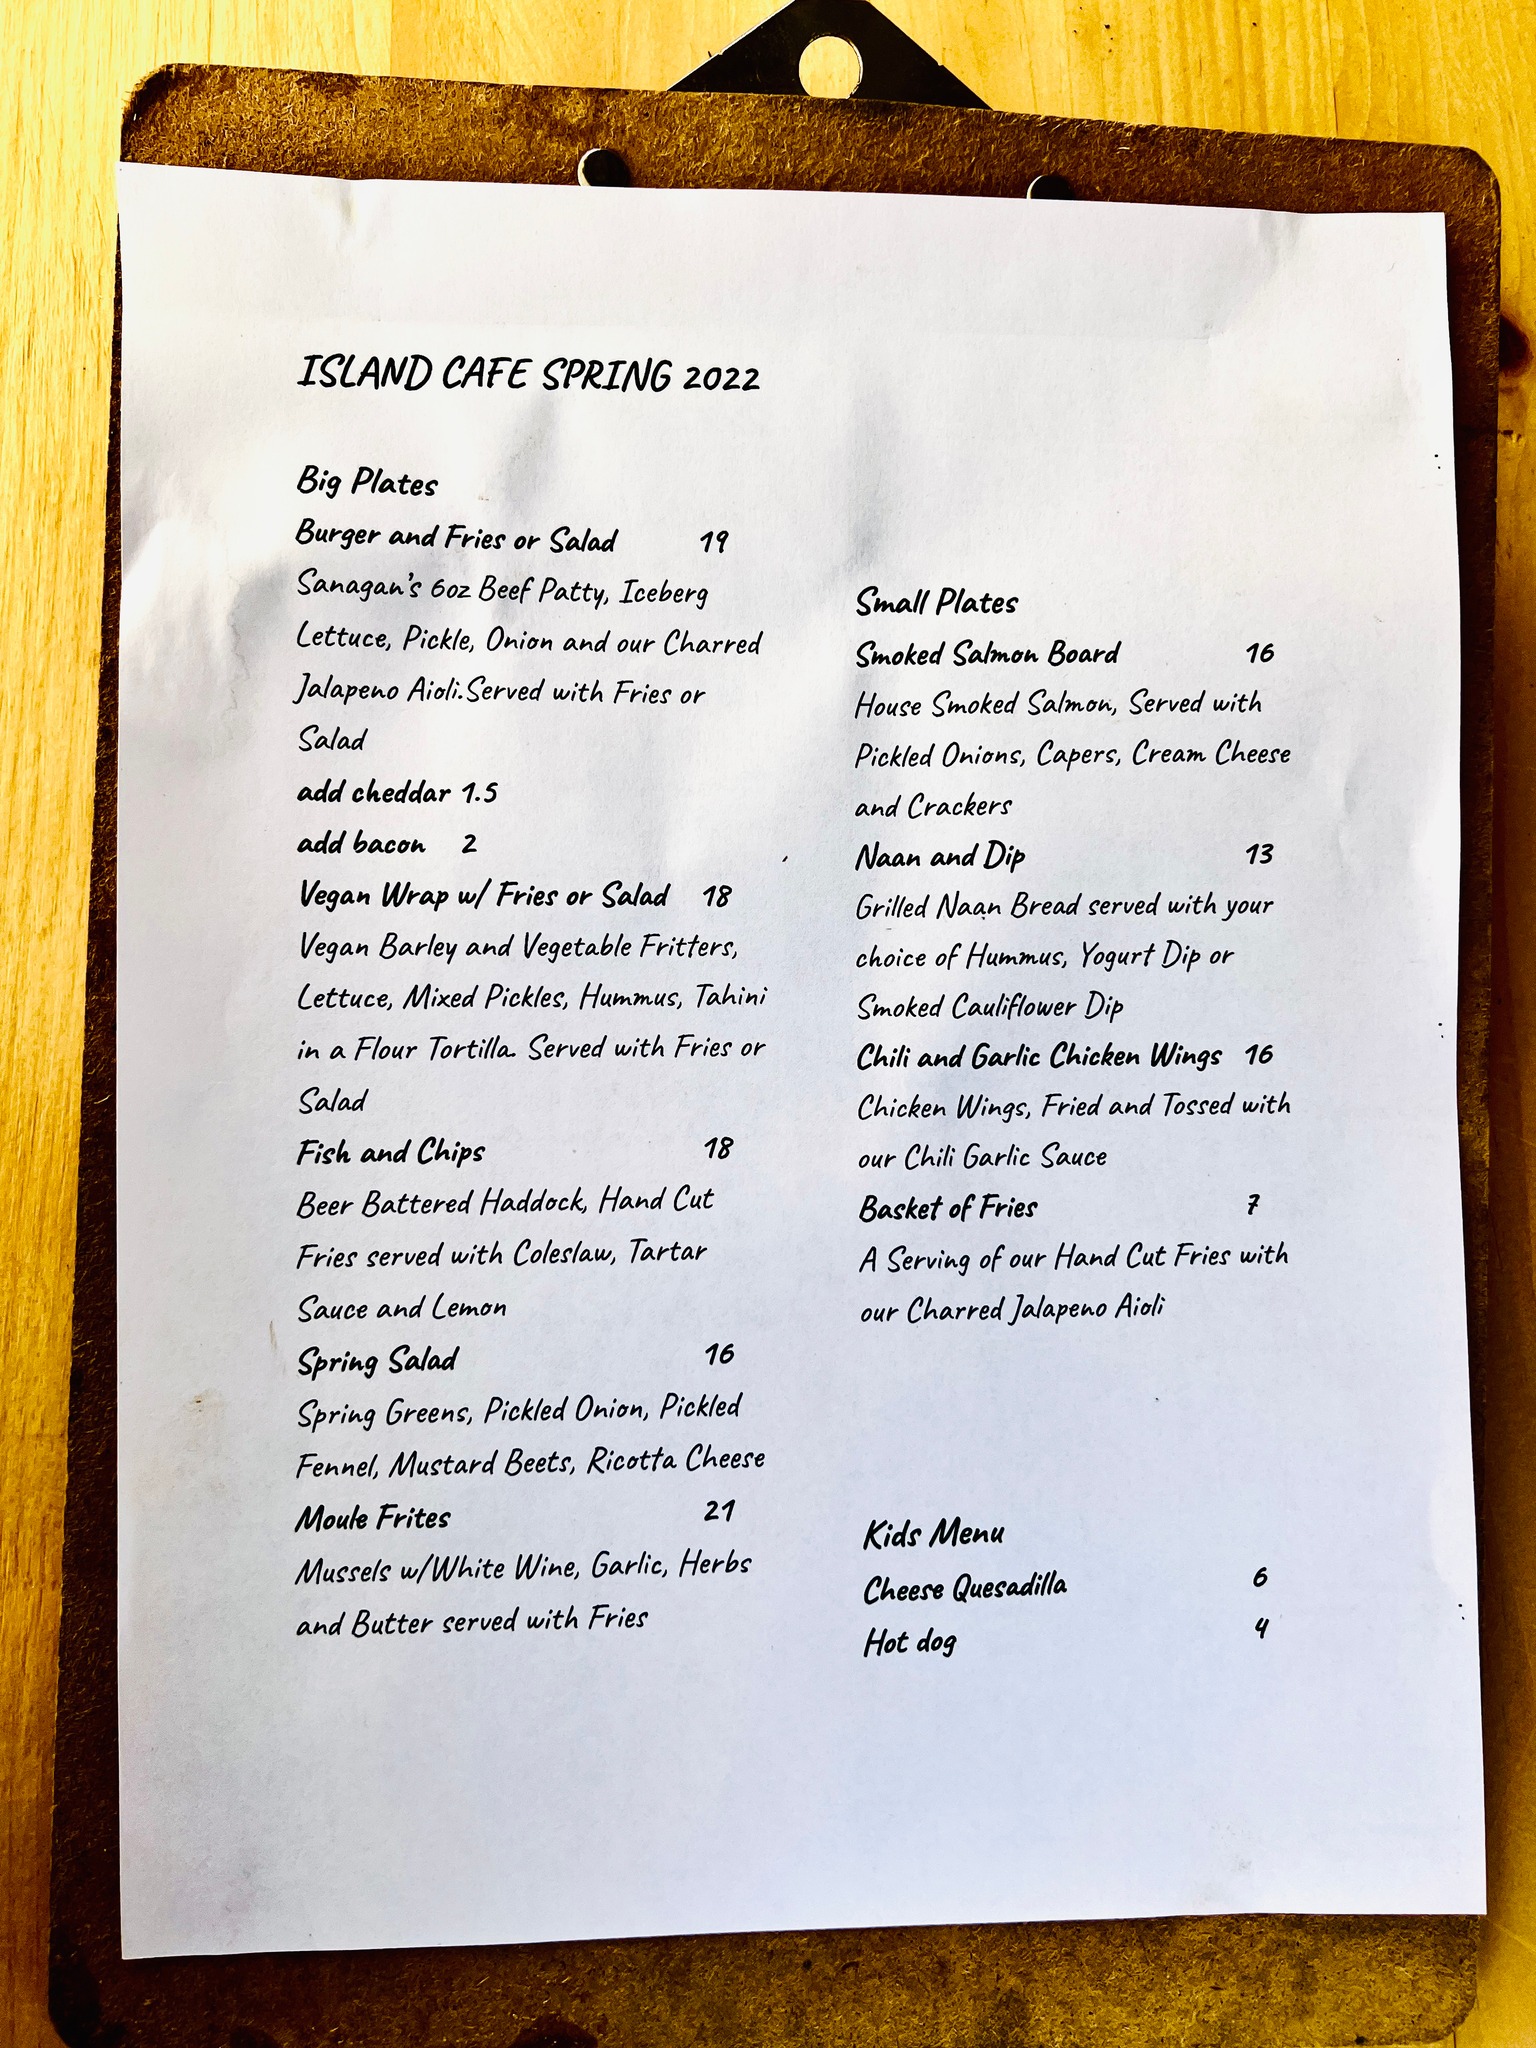 ISLAND CAFE SPRING 2022
Big Plates
Burger and Fries or Salad 19
Sanagan's 6oz Beef Patty, Iceberg
Lettuce, Pickle, Onion and our Charred
Jalapeno Aioli.Served with Fries or
Salad
add cheddar 1.5
add bacon 2
Vegan Wrap w/ Fries or Salad 18
Vegan Barley and Vegetable Fritters,
Lettuce, Mixed Pickles, Hummus, Tahini
in a Flour Tortilla. Served with Fries or
Salad
Fish and Chips 18
Beer Battered Haddock, Hand Cut
Fries served with Coleslaw, Tartar
Sauce and Lemon
Spring Salad 16
Spring Greens, Pickled Onion, Pickled
Fennel, Mustard Beets, Ricotta Cheese
Moule Frites 21
Mussels w/White Wine, Garlic, Herbs
and Butter served with Fries
Small Plates
Smoked Salmon Board 16
House Smoked Salmon, Served with
Pickled Onions, Capers, Cream Cheese
and Crackers
Naan and Dip 13
Grilled Naan Bread served with your
choice of Hummus, Yogurt Dip or
Smoked Cauliflower Dip
Chili and Garlic Chicken Wings 16
Chicken Wings, Fried and Tossed with
our Chili Garlic Sauce
Basket of Fries 7
A Serving of our Hand Cut Fries with
our Charred Jalapeno Aioli
Kids Menu
Cheese Quesadilla 6
Hot dog 4